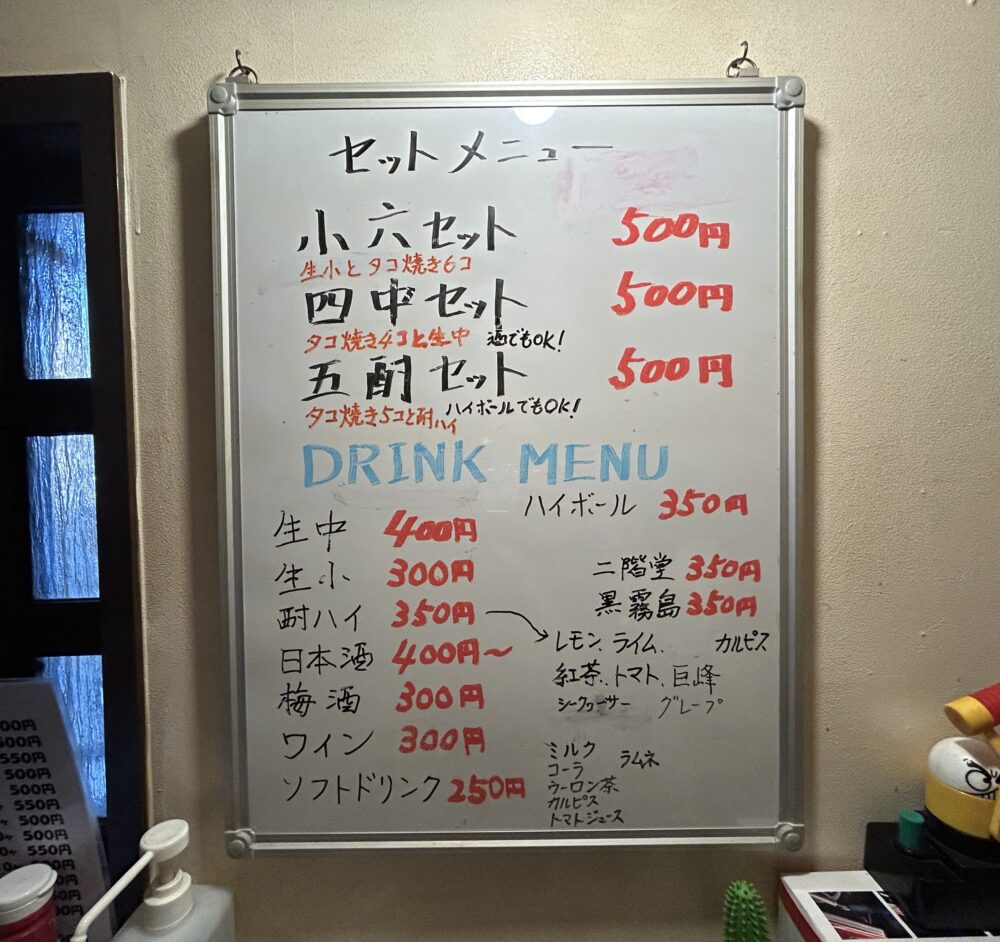 セットメニュー
小六セット 500円
生小とタコ焼き6コ
四中セット 500円
タコ焼き4コと生中 酒でもOK!
五酎セット 500円
タコ焼き5コと酎ハイ ハイボールでもOK!
DRINK MENU
ハイボール 350円
生中 400円
生小 300円
二階堂 350円
黒霧島 350円
酎ハイ 350円
レモン、ライム、 カルピス
紅茶、トマト、巨峰
シークワーサー グレープ
日本酒 400円~
梅酒 300円
ワイン 300円
ソフトドリンク 250円
ミルク
コーラ
ラムネ
ウーロン茶
カルピス
トマトジュース
00円
500円
550円
500円
550円
500円
550円
500円